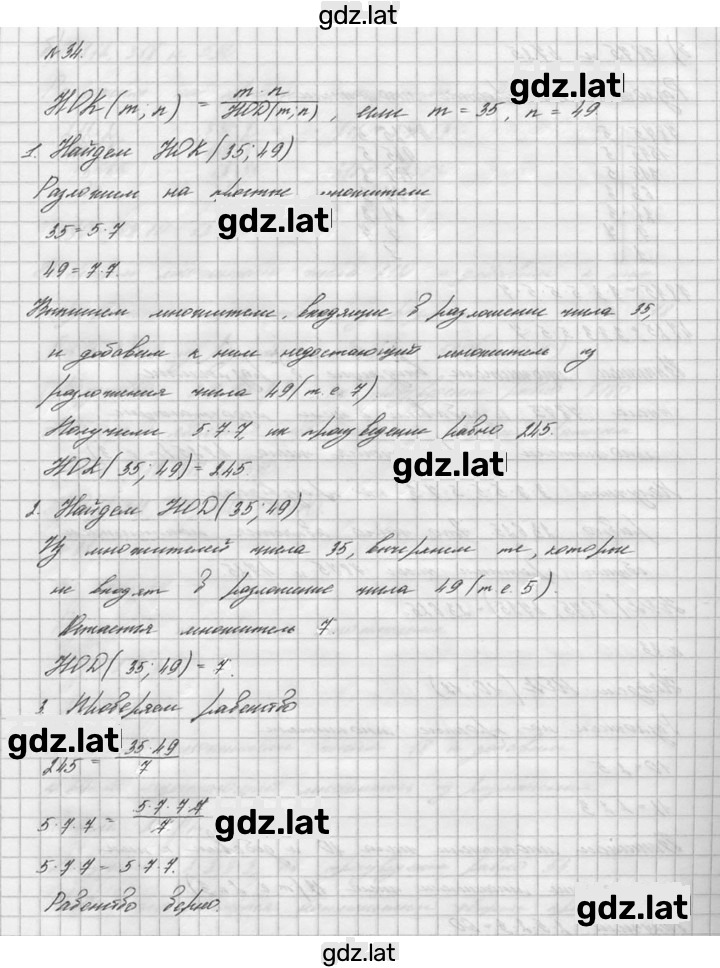 gdz.lat
№34.
gdz.lat
НОК(m; n) = m·n / НОД(m; n), если m = 35, n = 49.
1. Найдем НОК(35; 49)
Разложим на простые множители
gdz.lat
35 = 5·7
49 = 7·7.
Выпишем множители, входящие в разложение числа 35,
и добавим к ним недостающий множитель из
разложения числа 49 (т.е. 7)
Получили 5·7·7, их произведение равно 245.
НОК(35; 49) = 245.
gdz.lat
2. Найдем НОД(35; 49)
Из множителей числа 35, вычеркнем те, которые
не входят в разложение числа 49 (т.е. 5).
Остается множитель 7.
НОД(35; 49) = 7.
3. Проверяем равенство
gdz.lat
245 = 35·49 / 7
5·7·7 = 5·7·7·7 / 7
gdz.lat
5·7·7 = 5·7·7.
Равенство верно.
gdz.lat
gdz.lat